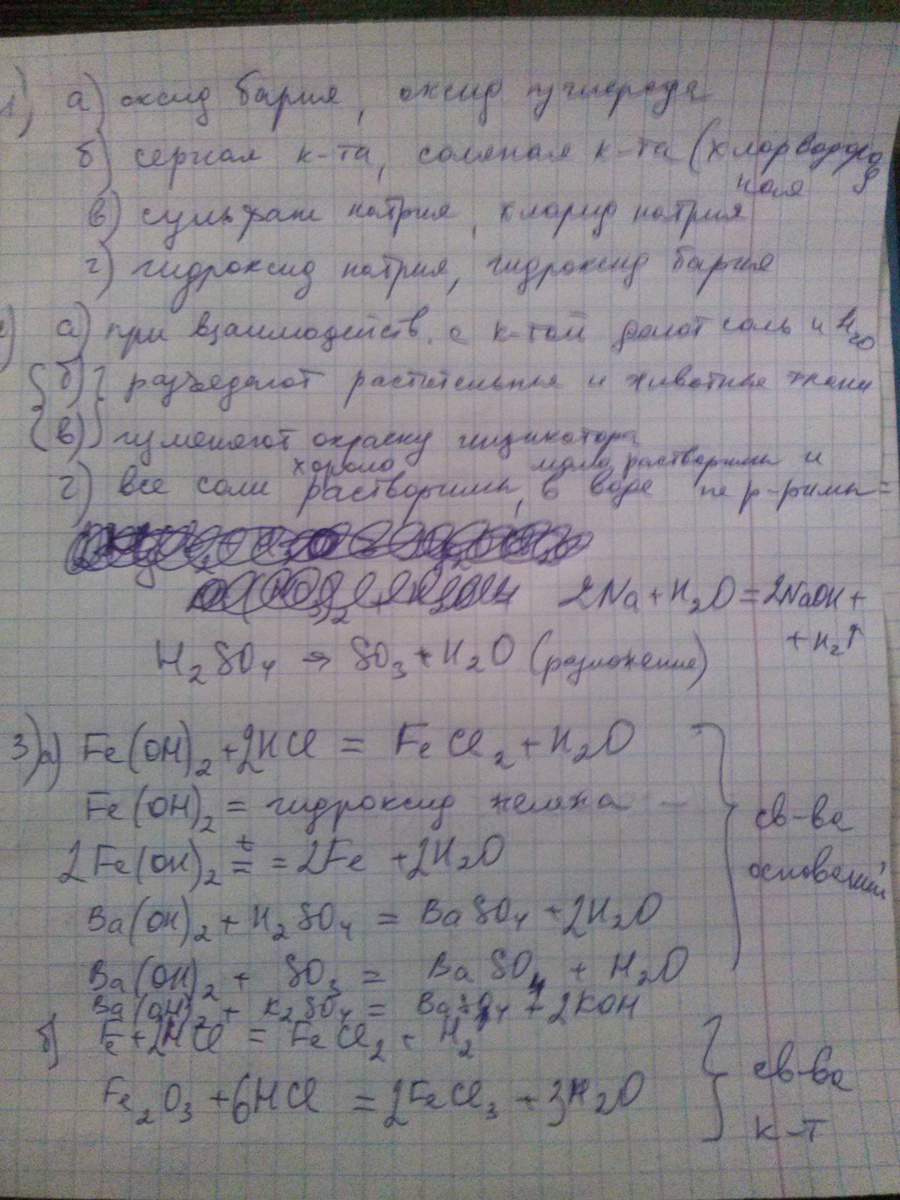 1) а) оксид бария, оксид углерода
б) серная к-та, соляная к-та (хлорводородная
в) сульфат натрия, хлорид натрия
г) гидроксид натрия, гидроксид бария
а) при взаимодейств. с к-той делают соль и H2O
б) разъедают растительные и животные ткани
в) изменяют окраску индикатора
г) все соли хорошо растворимы, в воде мало растворимы и не р-римы =
2Na + H2O = 2NaOH +
+ H2↑
H2SO4 → SO3 + H2O (разложение)
3) а) Fe(OH)2 + 2HCl = FeCl2 + H2O
Fe(OH)2 = гидроксид железа
св-ва
2Fe(OH)2 t = = 2Fe + 2H2O
оснований
Ba(OH)2 + H2SO4 = BaSO4 + 2H2O
Ba(OH)2 + SO3 = BaSO4 + H2O
Ba(OH)2 + K2SO4 = BaSO4 + 2KOH
б) Fe + 2HCl = FeCl2 + H2
св-ва
Fe2O3 + 6HCl = 2FeCl3 + 3H2O
к-т